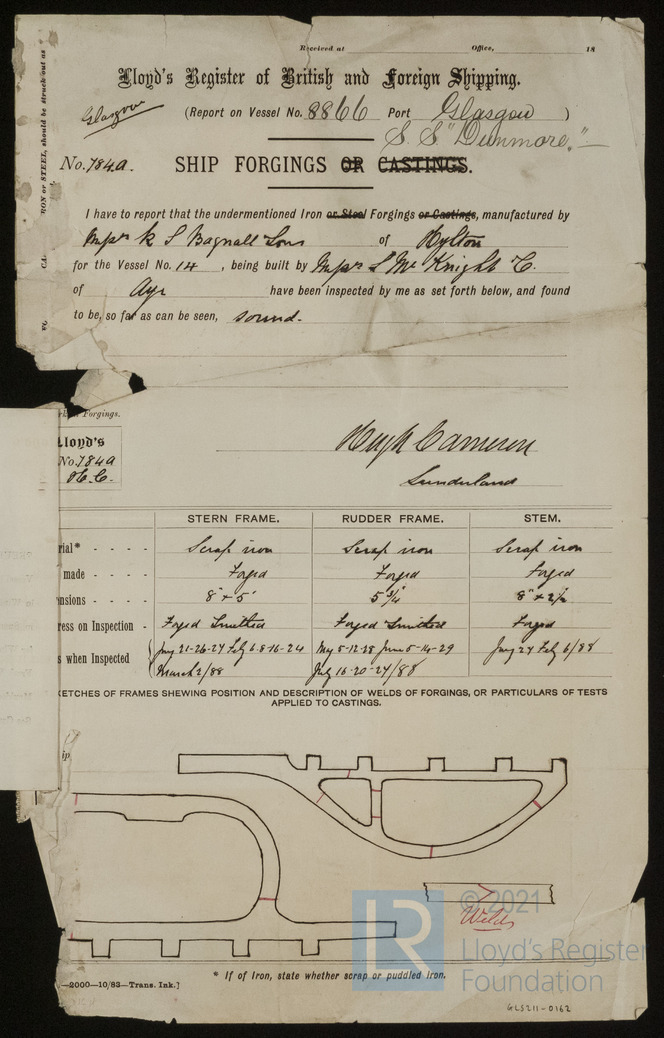 Received at Office, 18
Lloyd's Register of British and Foreign Shipping.
Glasgow (Report on Vessel No. 8866 Port Glasgow )
S.S "Dunmore,"
No. 784a. SHIP FORGINGS OR CASTINGS.
RON or STEEL, should be struck out as
I have to report that the undermentioned Iron or Steel Forgings or Castings, manufactured by
R S Bagnall Sons of Hylton
for the Vessel No. 14 , being built by S Mc Knight & C.
of Ayr have been inspected by me as set forth below, and found
to be, so far as can be seen, sound.
Forgings.
Lloyd's
No. 784a
H.C.
Hugh Cameron
Sunderland
STERN FRAME. RUDDER FRAME. STEM.
rial* - - - - Scrap iron Scrap iron Scrap iron
made - - - - Forged Forged Forged
nsions - - - - 8" x 5" 5 3/4 8" x 2 1/2
ress on Inspection - Forged Smitted Forged Smitted Forged
s when Inspected Jany 21-26-27 Feby 6-8-16-24 May 5-12-28 June 5-14-29 Jany 27 Feby 6/88
March 2/88 July 16-20-24/88
KETCHES OF FRAMES SHEWING POSITION AND DESCRIPTION OF WELDS OF FORGINGS, OR PARTICULARS OF TESTS
APPLIED TO CASTINGS.
ip
Welds
© 2021
LR
Lloyd's Register
Foundation
* If of Iron, state whether scrap or puddled iron.
—2000—10/83—Trans. Ink.]
GLS211-0162